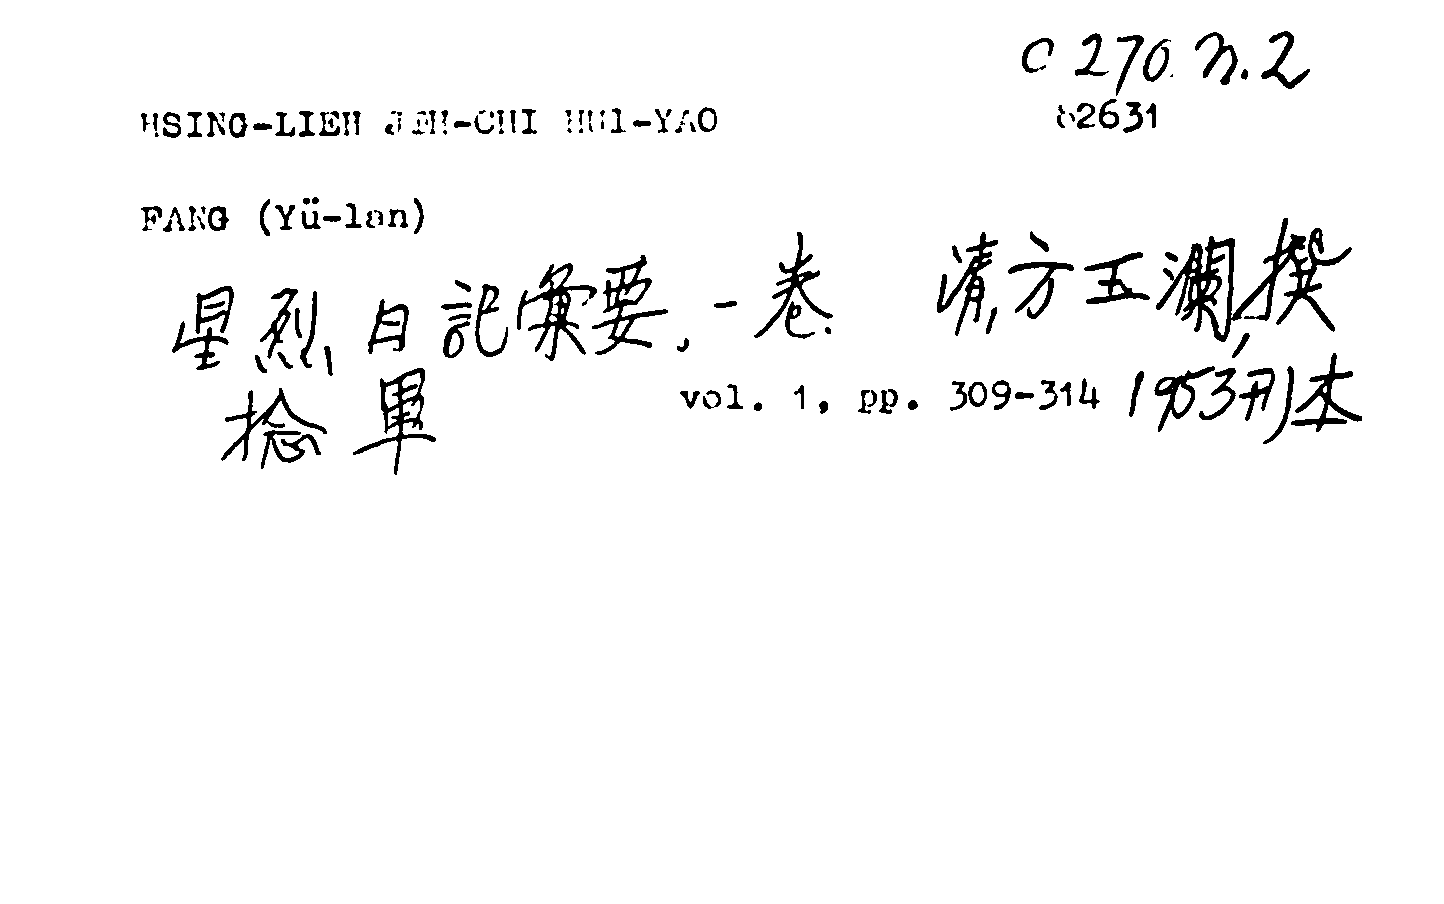 C 270. n.2
HSING-LIEH JEH-CHI HUI-YAO 62631
FANG (Yü-lan)
星烈日記彙要,一卷. 清,方玉瀾,撰
捻軍 vol. 1, pp. 309-314 1953刊本